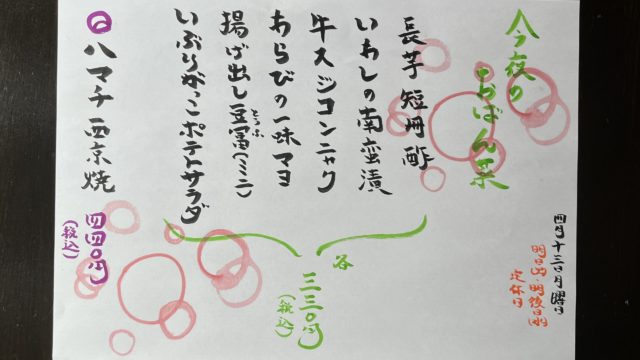 四月十三日月曜日
明日(火)・明後日(水)
定休日
今夜の
おばん菜
長芋短冊酢
いわしの南蛮漬
牛スジコンニャク
あらびの一味マヨ
揚げ出し豆冨(ミニ)
とうふ
いぶりがっこポテトサラダ
各
三三〇円
(税込)
◎ハマチ西京焼
四四〇円
(税込)